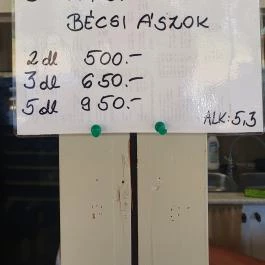 BÉCSI ÁSZOK
2 dl 500.-
3 dl 650.-
5 dl 950.-
ALK: 5,3